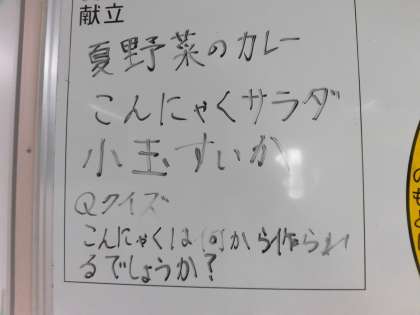 献立
夏野菜のカレー
こんにゃくサラダ
小玉すいか
Qクイズ
こんにゃくは何から作られ
るでしょうか?